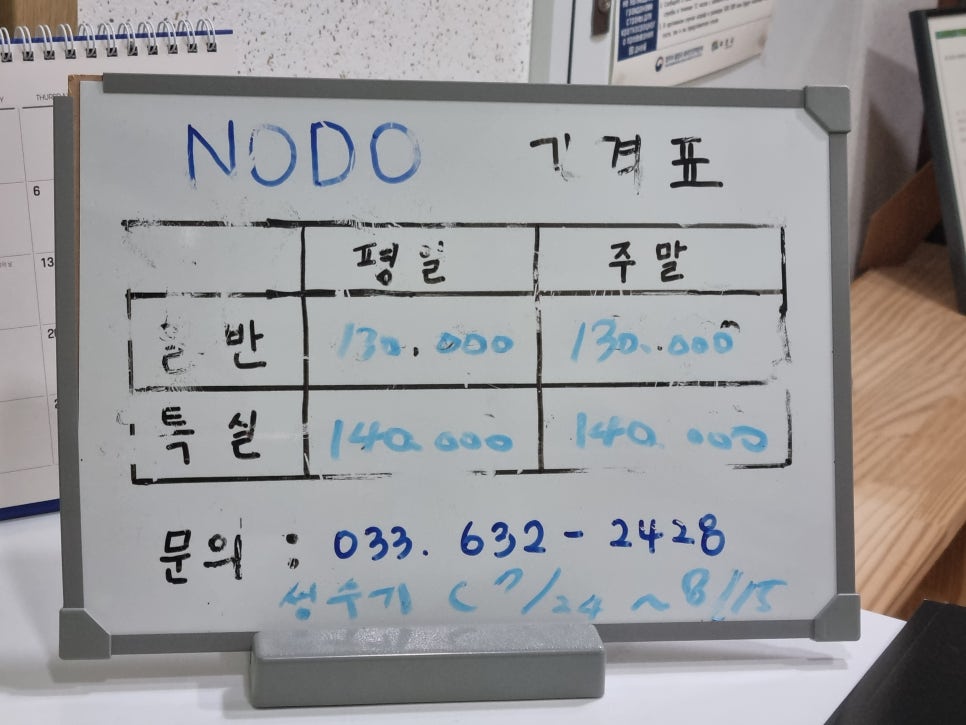 NODO 가격표
평일 주말
일반 130.000 130.000
특실 140.000 140.000
문의 : 033. 632-2428
성수기 ( 7/24 ~ 8/15
6
13